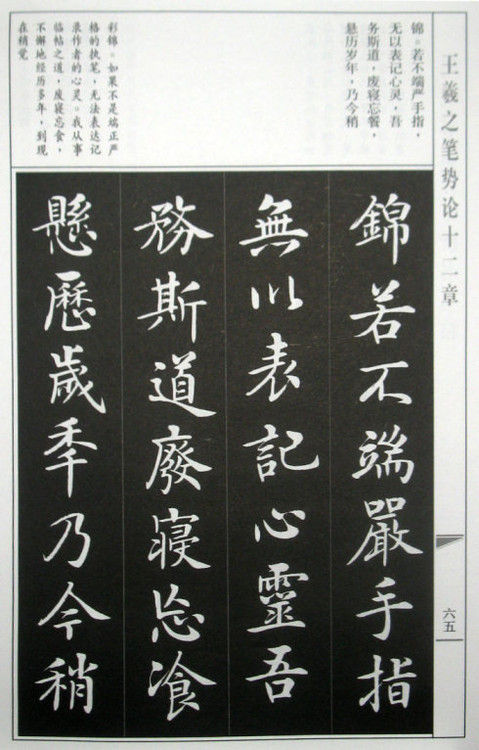 王羲之笔势论十二章
六五
锦。若不端严手指，
无以表记心灵，吾
务斯道，废寝忘餐，
悬历岁年，乃今稍
彩锦。如果不是端正严
格的执笔，无法表达记
录作者的心灵。我从事
临帖之道，废寝忘食，
不懈地经历多年，到现
在稍觉
錦若不端嚴手指
無以表記心靈吾
務斯道廢寝忘飡
懸歷歲秊乃今稍